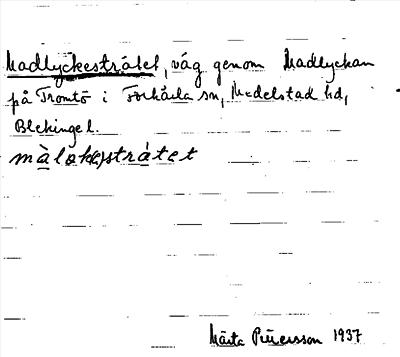 Madlyckestråtet, väg genom Madlyckan
på Tromtö i Förkärla sn, Medelstad hd,
Blekinge l.
màlok(e)stråtet
Märta Petersson 1937